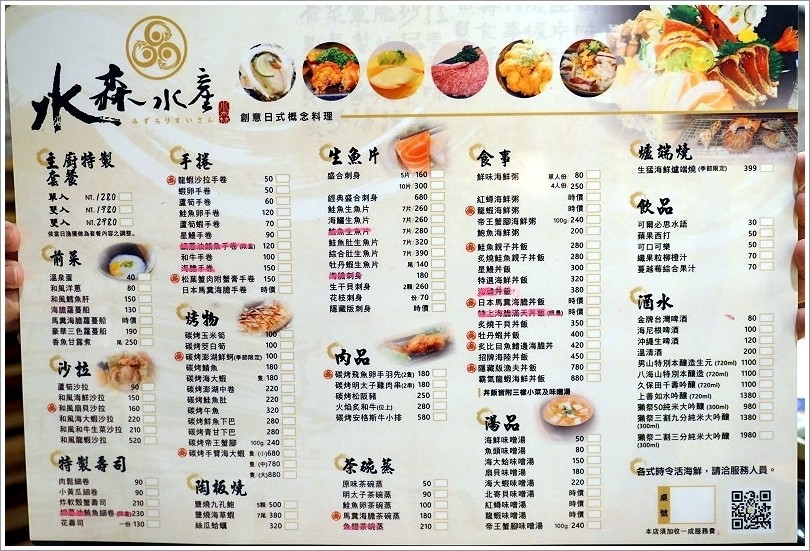 水森水産
みずもりすいさん
創意日式概念料理
主廚特製
套餐
單入 NT.1280
雙入 NT.1980
雙入 NT.2980
依當日漁獲做為套餐內容之調整。
前菜
溫泉蛋 40
和風洋蔥 80
和風鱈魚肝 150
海膽蘿蔓船 130
馬糞海膽蘿蔓船 時價
豪華三色蘿蔓船 190
香魚甘露煮 尾 250
沙拉
蘆筍沙拉 90
和風海鮮沙拉 150
和風扇貝沙拉 160
和風海大蝦沙拉 220
和風和牛生菜沙拉 210
和風龍蝦沙拉 520
特製壽司
肉鬆細卷 90
小黃瓜細卷 90
炸軟殼蟹壽司 210
鮪魚細卷 230
花壽司 一份 130
手捲
龍蝦沙拉手卷 50
蝦卵手卷 50
蘆筍手卷 60
鮭魚卵手卷 120
蘆筍蝦手卷 70
星鰻手卷 90
和牛手卷 150
海膽手卷 150
松葉蟹肉附蟹膏手卷 150
日本馬糞海膽手卷 時價
烤物
碳烤玉米筍 100
碳烤茭白筍 100
碳烤澎湖鮮蚵(季節限定) 100
碳烤鯖魚 180
碳烤海大蝦 隻 180
碳烤澎湖中卷 220
碳烤鮭魚肚 220
碳烤午魚 320
碳烤鮮魚下巴 280
碳烤青甘下巴 280
碳烤帝王蟹腳 100g 240
碳烤手臂海大蝦 隻 (小)680
隻 (中)780
隻 (大)880
陶板燒
鹽燒九孔鮑 5顆 500
鹽燒海草蝦 7尾 380
絲瓜蛤蠣 320
生魚片
盛合刺身 5片 160
10片 300
經典盛合刺身 680
鮭魚生魚片 7片 260
海鱺生魚片 7片 260
鮪魚生魚片 7片 280
鮭魚肚生魚片 7片 320
綜合肚生魚片 7片 390
牡丹蝦生魚片 尾 140
海膽刺身 180
生干貝刺身 2顆 260
花枝刺身 份 70
隱藏版刺身 時價
肉品
碳烤飛魚卵手羽先(2隻) 180
碳烤明太子雞肉串(2串) 180
碳烤松阪豬 250
火焰炙和牛(位上) 280
碳烤安格斯牛小排 580
茶碗蒸
原味茶碗蒸 50
明太子茶碗蒸 90
鮭魚卵茶碗蒸 100
馬糞海膽茶碗蒸 時價
魚翅茶碗蒸 210
食事
鮮味海鮮粥 單人份 80
4人份 250
紅蟳海鮮粥 時價
龍蝦海鮮粥 時價
帝王蟹腳海鮮粥 100g 240
鮑魚海鮮粥 200
鮭魚親子丼飯 280
炙燒鮭魚親子丼飯 280
星鰻丼飯 300
特選海鮮丼飯 380
海膽丼飯 380
日本馬糞海膽丼飯 時價
特上海膽滿天丼飯 時價
炙燒干貝丼飯 350
牡丹蝦丼飯 400
炙比目魚鰭邊海膽丼 420
招牌海陸丼飯 450
隱藏版漁夫丼飯 580
霸氣龍蝦海鮮丼飯 880
丼飯皆附三樣小菜及味噌湯
湯品
海鮮味噌湯 50
魚頭味噌湯 80
海大蛤味噌湯 150
扇貝味噌湯 180
海大蝦味噌湯 220
北寄貝味噌湯 時價
紅蟳味噌湯 時價
龍蝦味噌湯 時價
帝王蟹腳味噌湯 100g 240
爐端燒
生猛海鮮爐端燒(季節限定) 399
飲品
可爾必思水語 30
蘋果西打 50
可口可樂 50
纖果粒柳橙汁 70
蔓越莓綜合果汁 70
酒水
金牌台灣啤酒 120
海尼根啤酒 100
沖繩生啤酒 160
溫清酒 200
男山特別本釀造生元(720ml) 1100
八海山特別本釀造(720ml) 1100
久保田千壽吟釀(720ml) 1100
上善如水吟釀(720ml) 1380
獺祭50純米大吟釀(300ml) 980
獺祭三割九分純米大吟釀(300ml) 1380
獺祭二割三分純米大吟釀(300ml) 1980
各式時令活海鮮，請洽服務人員。
桌號
本店須加收一成服務費